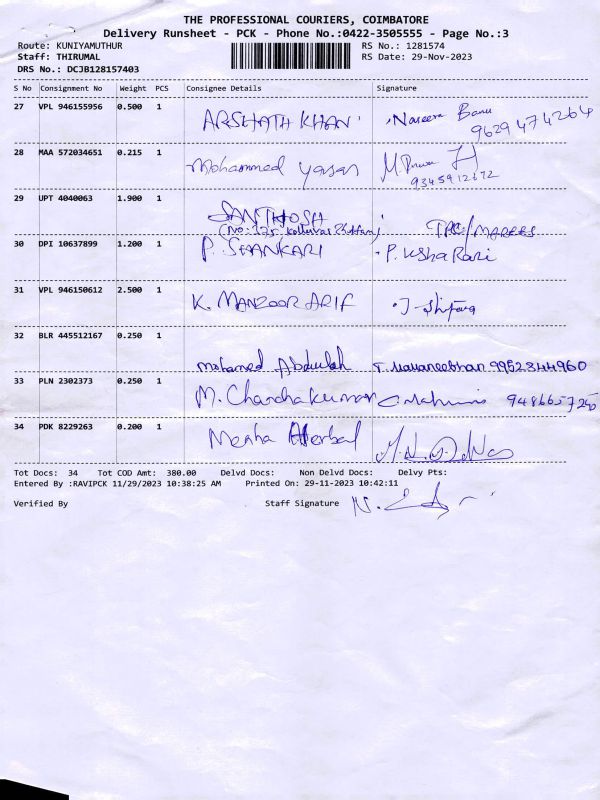 THE PROFESSIONAL COURIERS, COIMBATORE
Delivery Runsheet - PCK - Phone No.:0422-3505555 - Page No.:3
Route: KUNIYAMUTHUR RS No.: 1281574
Staff: THIRUMAL RS Date: 29-Nov-2023
DRS No.: DCJB128157403
S No Consignment No Weight PCS Consignee Details Signature
27 VPL 946155956 0.500 1 ARSHATH KHAN Naseera Banu
9629474264
28 MAA 572034651 0.215 1 Mohammed yasar M.
9345912672
29 UPT 4040063 1.900 1 SANTHOSH
(No: 175
30 DPI 10637899 1.200 1 P. SHANKARI P. Usha Rani
31 VPL 946150612 2.500 1 K. MANZOOR ARIF J-Shifana
32 BLR 445512167 0.250 1 mohamed Abdullah 9952844960
33 PLN 2302373 0.250 1 M. Chandra kumar
34 PDK 8229263 0.200 1 Megha Herbal
Tot Docs: 34 Tot COD Amt: 380.00 Delvd Docs: Non Delvd Docs: Delvy Pts:
Entered By :RAVIPCK 11/29/2023 10:38:25 AM Printed On: 29-11-2023 10:42:11
Verified By Staff Signature